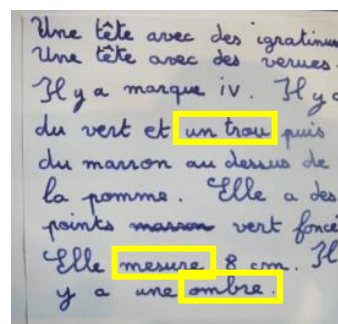 Une tête avec des igratinu
Une tête avec des verues.
Il y a marque iv. Il y a
du vert et un trou puis
du marron au dessus de
la pomme. Elle a des
points marron vert foncé
Elle mesure 8 cm. Il
y a une ombre.